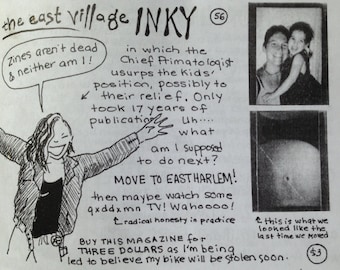 the east village INKY
56
zines aren't dead
& neither am I!
in which the
Chief Primatologist
usurps the kids'
position, possibly to
their relief. Only
took 17 years of
publication. Uh....
what
am I supposed
to do next?
MOVE TO EAST HARLEM!
then maybe watch some
qxddxmn TV! Wahoooo!
radical honesty in practice
this is what we
looked like the
last time we moved
BUY THIS MAGAZINE for
THREE DOLLARS as I'm being
led to believe my bike will be stolen soon.
$3